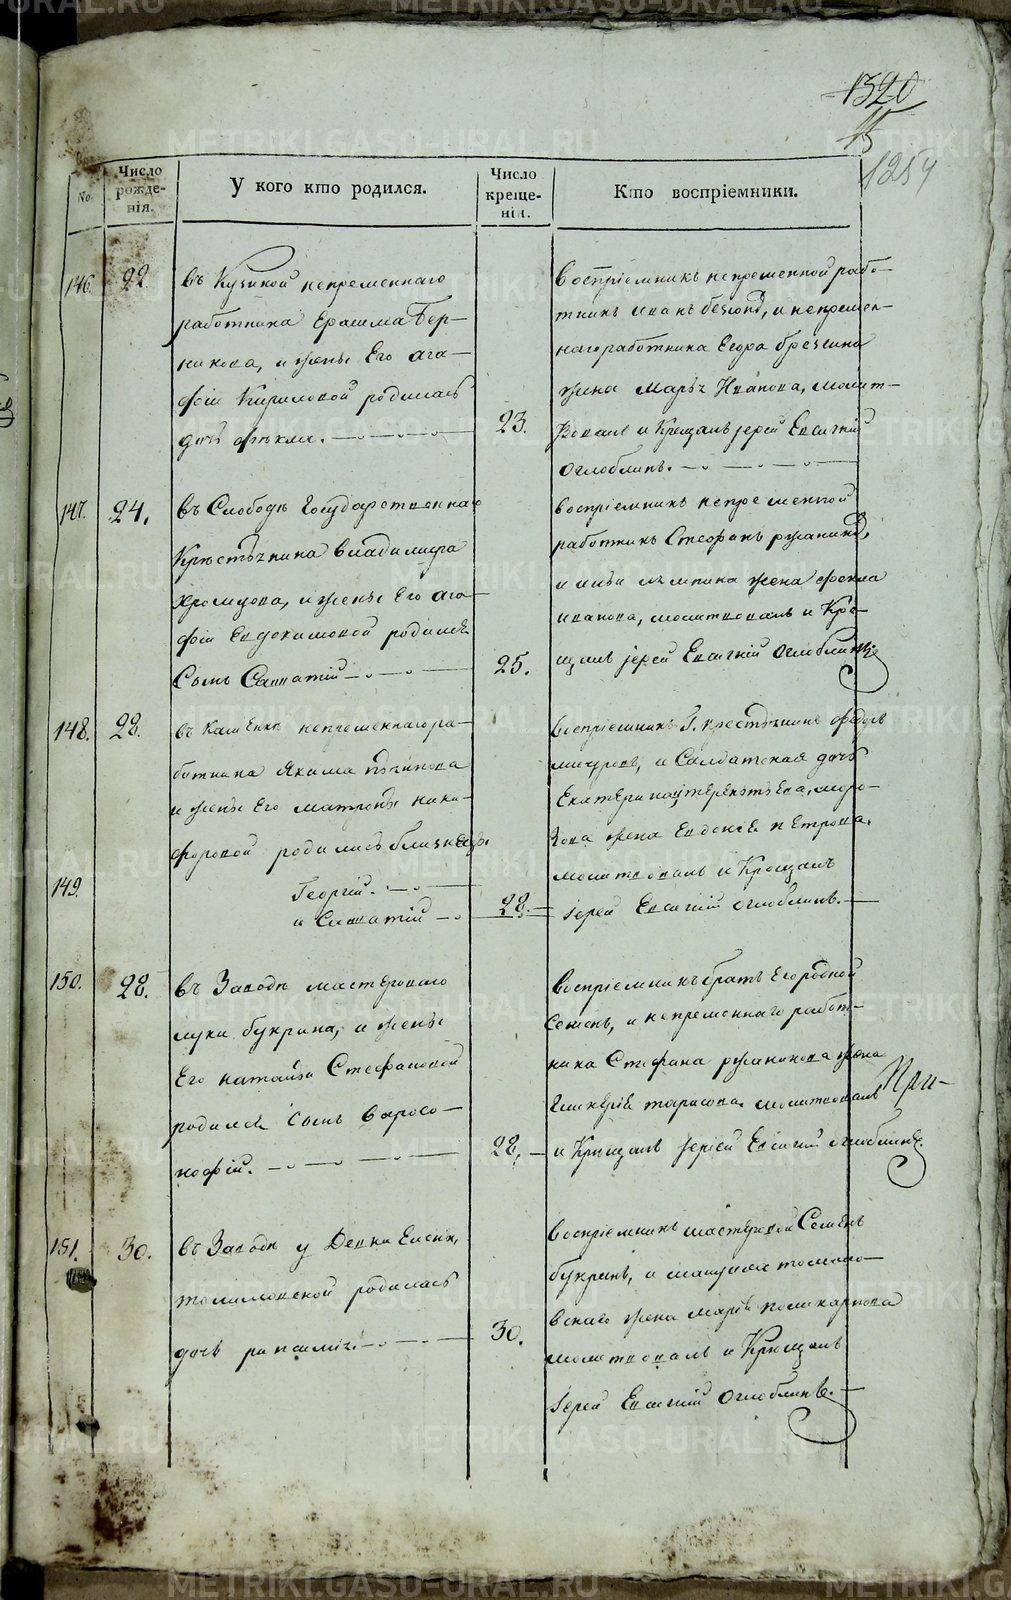 1320
15
1254
№
Число рожде-нія.
У кого кто родился.
Число креще-нія.
Кто воспріемники.
146.
22
въ Кузиной непременнаго
работника Ерасима Бер-
никова, и жены Его ага-
фіи Кириловой родилась
дочь фекла.
23.
воспріемникъ непременной рабо-
тникъ иванъ
, и непремен-
наго работника Егора брезгина
жена марья Иванова, молит-
вовалъ и Крещалъ іерей Евсигній
Оглоблинъ.
147.
24.
въ Слободе Государственнаго
Крестьянина владимира
хромцова, и жены Его ага-
фіи Евдокимовой родился
Сынъ Савватій
25.
воспріемникъ непременной
работникъ Стефанъ русакинъ,
и
жена фекла
иванова, молитвовалъ и Кре-
щалъ іерей Евсигній Оглоблинъ
148.
28.
въ каменке непременнаго ра-
ботника Якима
и жены Его матроны ника-
форовой родились близнецы
149.
Георгій.
и Савватій
28.
воспріемникъ Г. крестьянинъ федоръ
мичуровъ, и Салдатская дочь
Екатерина
, моро-
зова жена Евдокія петрова.
молитвовалъ и Крещалъ
іерей Евсигній оглоблинъ.
150.
28.
въ Заводе мастероваго
луки букрина, и жены
Его натальи Стефановой
родился Сынъ варсо-
нофій.
28.
воспріемникъ братъ Его родной
Семенъ, и непременнаго работ-
ника Стефана русакинова жена
Гликерія тарасова молитвовалъ
и Крещалъ іерей Евсигній оглоблинъ.
При-
151.
30.
въ Заводе у Девки Елены
толмачевской родилась
дочь
30.
воспріемникъ мастеровой Семенъ
букринъ, и
толмаче-
вскаго жена марья поликарпова
молитвовалъ и Крещалъ
іерей Евсигній Оглоблинъ.
METRIKI.GASO-URAL.RU